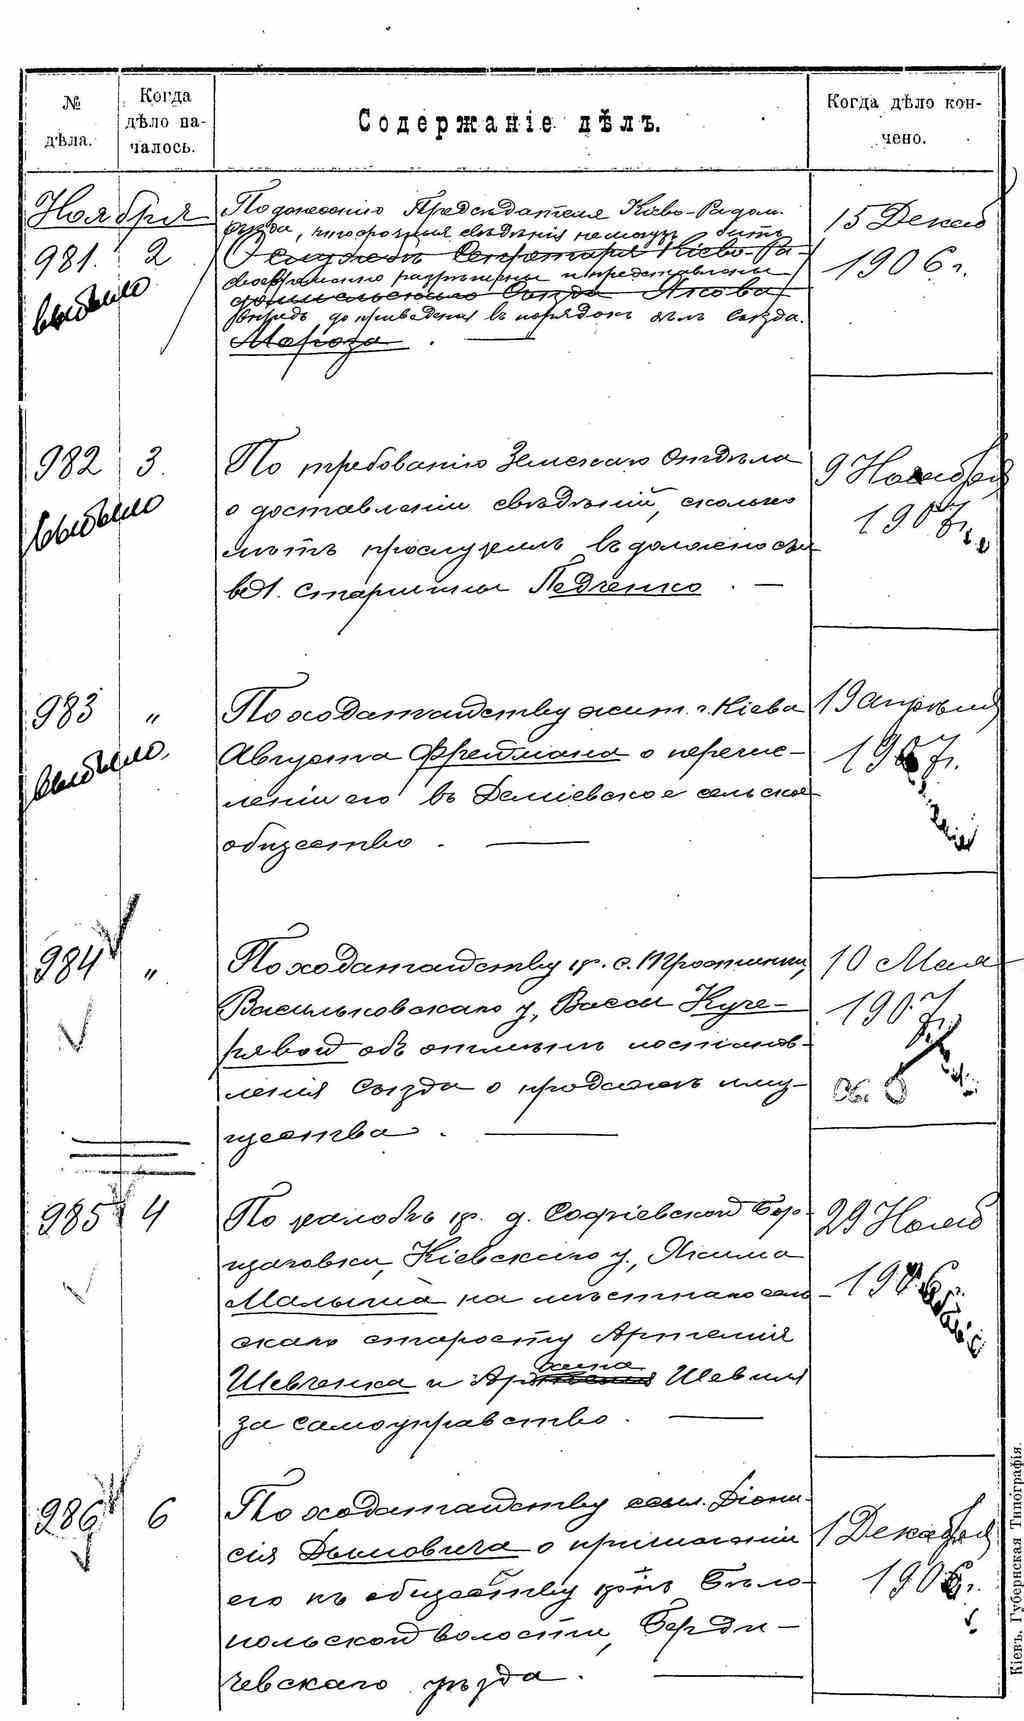 № дѣла.
Когда дѣло на-
чалось.
Содержаніе дѣлъ.
Когда дѣло кон-
чено.
Ноября
981.
выбыло
2
По донесенію Предсѣдателя Кіево-Радом.
съѣзда, что срочныя свѣдѣнія не могутъ быть
О служащ. Секретаря Кіево-Ра-
своевременно разрѣшены и представлены
домысльскаго Съѣзда Якова
впредь до приведенія въ порядокъ дѣлъ Съѣзда.
Мороза.
15 Декаб
1906 г.
982
выбыло
3.
По требованію Земскаго Отдѣла
о доставленіи свѣдѣній, сколько
лѣтъ прослужилъ въ должности
вол. старшины Педченко. —
9 Ноября
1907 г.
983
выбыло.
"
По ходатайству жит. г. Кіева
Августа Фреймана о перечис-
леніи его въ Деміевское сельское
общество. —
19 апрѣля
1907 г.
984
"
По ходатайству кр. с.
Васильковскаго у, Васы Куче-
рявой объ отмѣнѣ постанов-
ленія Съѣзда о продажѣ иму-
щества. —
10 Мая
1907 г.
985
4
По жалобѣ кр. д. Софіевской Бор-
щаговки, Кіевскаго у., Якима
Малыша на мѣстнаго сель-
скаго старосту Артемія
Шевченка и Шевеля
за самоуправство. —
29 Нояб
1906 г.
986
6
По ходатайству ссыл. Діони-
сія Дымовича о приписаніи
его къ обществу кр-нъ Бѣло-
польской волости, Берди-
чевскаго уѣзда. —
1 Декабря
1906 г.
Кіевъ. Губернская Типографія.